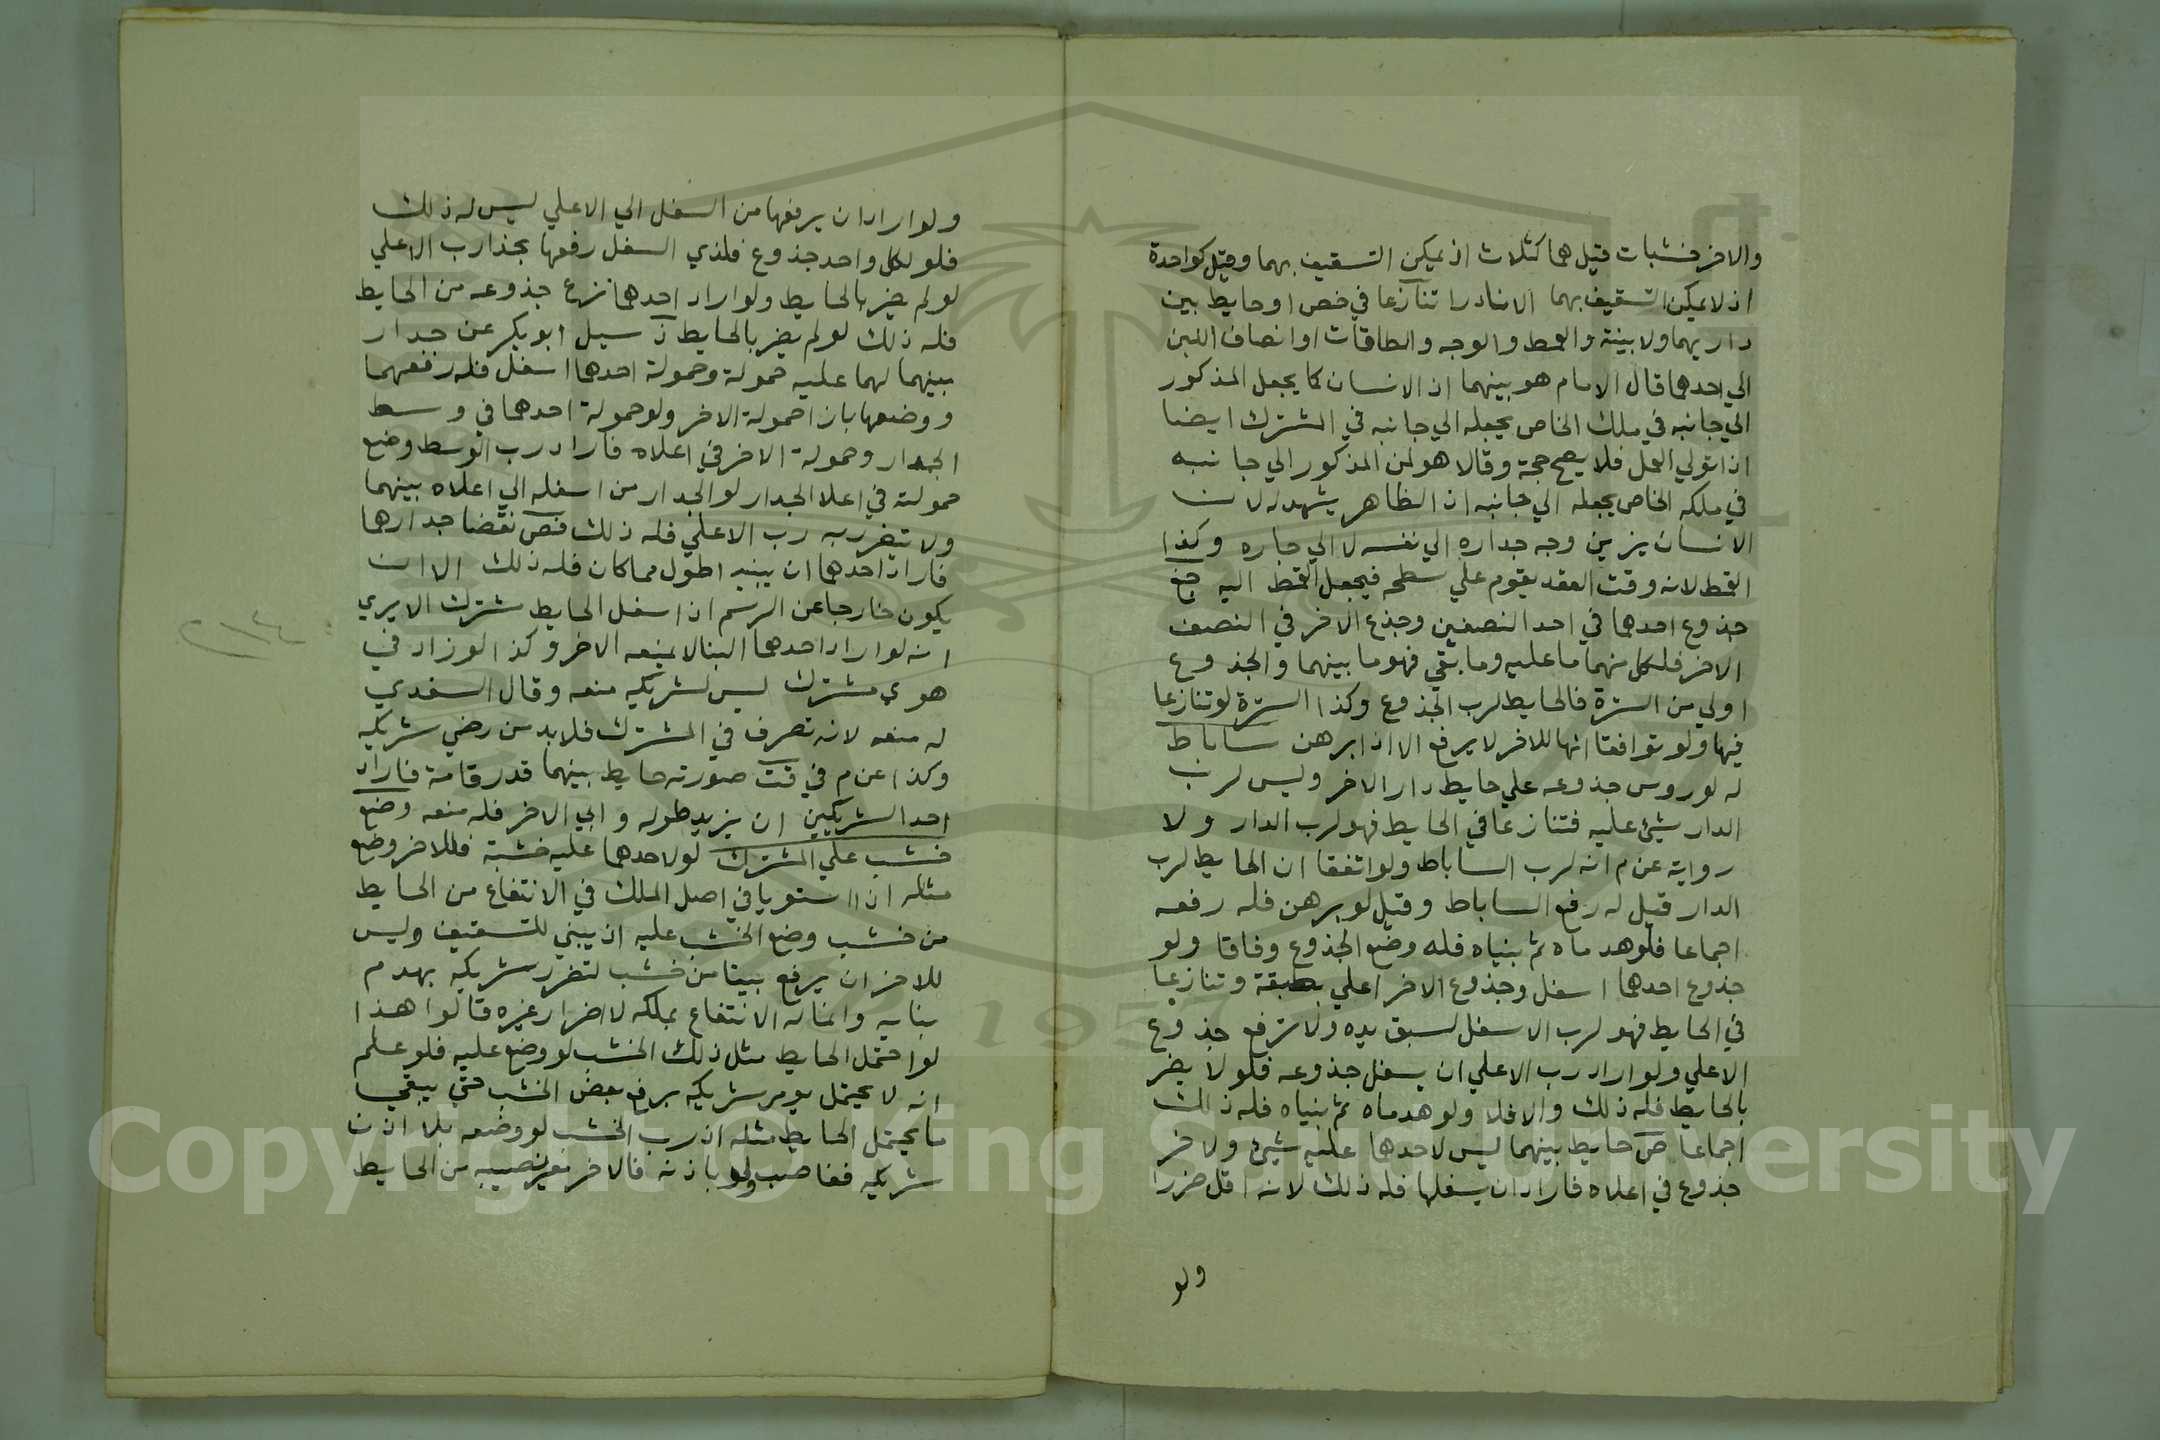 والاخر خشبات قيل هما كثلاث اذ يمكن التسقيف بهما وقيل كواحدة
اذ لا يمكن التسقيف بهما الا نادرا تنازعا في خص او حايط بين
داريهما ولا بينة والقمط والوجه والطاقات او انصاف اللبن
الي احدهما قال الامام هو بينهما اذ الانسان كما يجعل المذكور
الي جانبه في ملك الخاص يجعله الي جانبه في المشترك ايضا
اذا تولي العمل فلا يصح حجة وقالا هو لمن المذكور الي جانبه
في ملكه الخاص يجعله الي جانبه اذ الظاهر يشهد له لان
الانسان يزين وجه جداره الي نفسه لا الي جاره وكذا
القمط لانه وقت العقد يقوم علي سطحه فيجعل القمط اليه جع
جذوع احدهما في احد النصفين وجذع الاخر في النصف
الاخر فلكل منهما ما عليه وما بقي فهو ما بينهما والجذوع
اولي من السترة فالحايط لرب الجذوع وكذا السترة لو تنازعا
فيها ولو توافقا انها للاخر لا يرفع الا اذا برهن ساباط
له لو روس جذوعه علي حايط دار الاخر وليس لرب
الدار شيئ عليه فتنازعا في الحايط فهو لرب الدار ولا
رواية عن م انه لرب الساباط ولو اتفقا ان الحايط لرب
الدار قيل له رفع الساباط وقيل لو برهن فله رفعه
اجماعا فلو هدماه ثم بنياه فله وضع الجذوع وفاقا ولو
جذوع احدهما اسفل وجذوع الاخر اعلي بطبقة وتنازعا
في الحايط فهو لرب الاسفل لسبق يده ولا ترفع جذوع
الاعلي ولو اراد رب الاعلي ان يسفل جذوعه فلو لا يضر
بالحايط فله ذلك والا فلا ولو هدماه ثم بنياه فله ذلك
اجماعا ص حايط بينهما ليس لاحدهما عليه شيئ ولاخر
جذوع في اعلاه فاراد ان يسفلها فله ذلك لانه اقل ضررا
ولو
ولو اراد ان يرفعها من السفل الي الاعلي ليس له ذلك
فلو لكل واحد جذوع فلذي السفل رفعها بجذا رب الاعلي
لو لم يضر بالحايط ولو اراد احدهما نزع جذوعه من الحايط
فله ذلك لو لم يضر بالحايط ذ سيل ابو بكر عن جدار
بينهما لهما عليه حمولة وحمولة احدهما اسفل فله رفعهما
ووضعها بازا حمولة الاخر ولو حمولة احدهما في وسط
الجدار وحمولة الاخر في اعلاه فاراد رب الوسط وضع
حمولته في اعلا الجدار لو الجدار من اسفله الي اعلاه بينهما
ولا تتضرر به رب الاعلي فله ذلك فص نقضا جدارها
فاراد احدهما ان يبنيه اطول مما كان فله ذلك الا ان
يكون خارجا عن الرسم اذ اسفل الحايط مشترك الا يري
انه لو اراد احدهما البنا لا يمنعه الاخر وكذا لو زاد في
هوي مشترك ليس لشريكه منعه وقال السغدي
له منعه لانه تصرف في المشترك فلا بد من رضي شريكه
وكذا عن م في فت صورته حايط بينهما قدر قامة فاراد
احد الشريكين ان يزيد طوله وابي الاخر فله منعه وضع
خشب علي المشترك لو لاحدهما عليه خشبة فللاخر وضع
مثله اذا استويا في اصل الملك في الانتفاع من الحايط
من خشب وضع الخشب عليه اذ يبني للتسقيف وليس
للاخر ان يرفع بيتا من خشب لتضرر شريكه بهدم
بنايه وانما له الانتفاع بملكه لا اضرار غيره قالوا هذا
لو احتمل الحايط مثل ذلك الخشب لو وضع عليه فلو علم
انه لا يحتمل يومر شريكه برفع بعض الخشب حتي يبقي
ما يحتمل الحايط مثله اذ رب الخشب لو وضعه بلا اذن
شريكه فغاصب ولو باذنه فالاخر نصيبه من الحايط
Copyright © King Saud University
1957